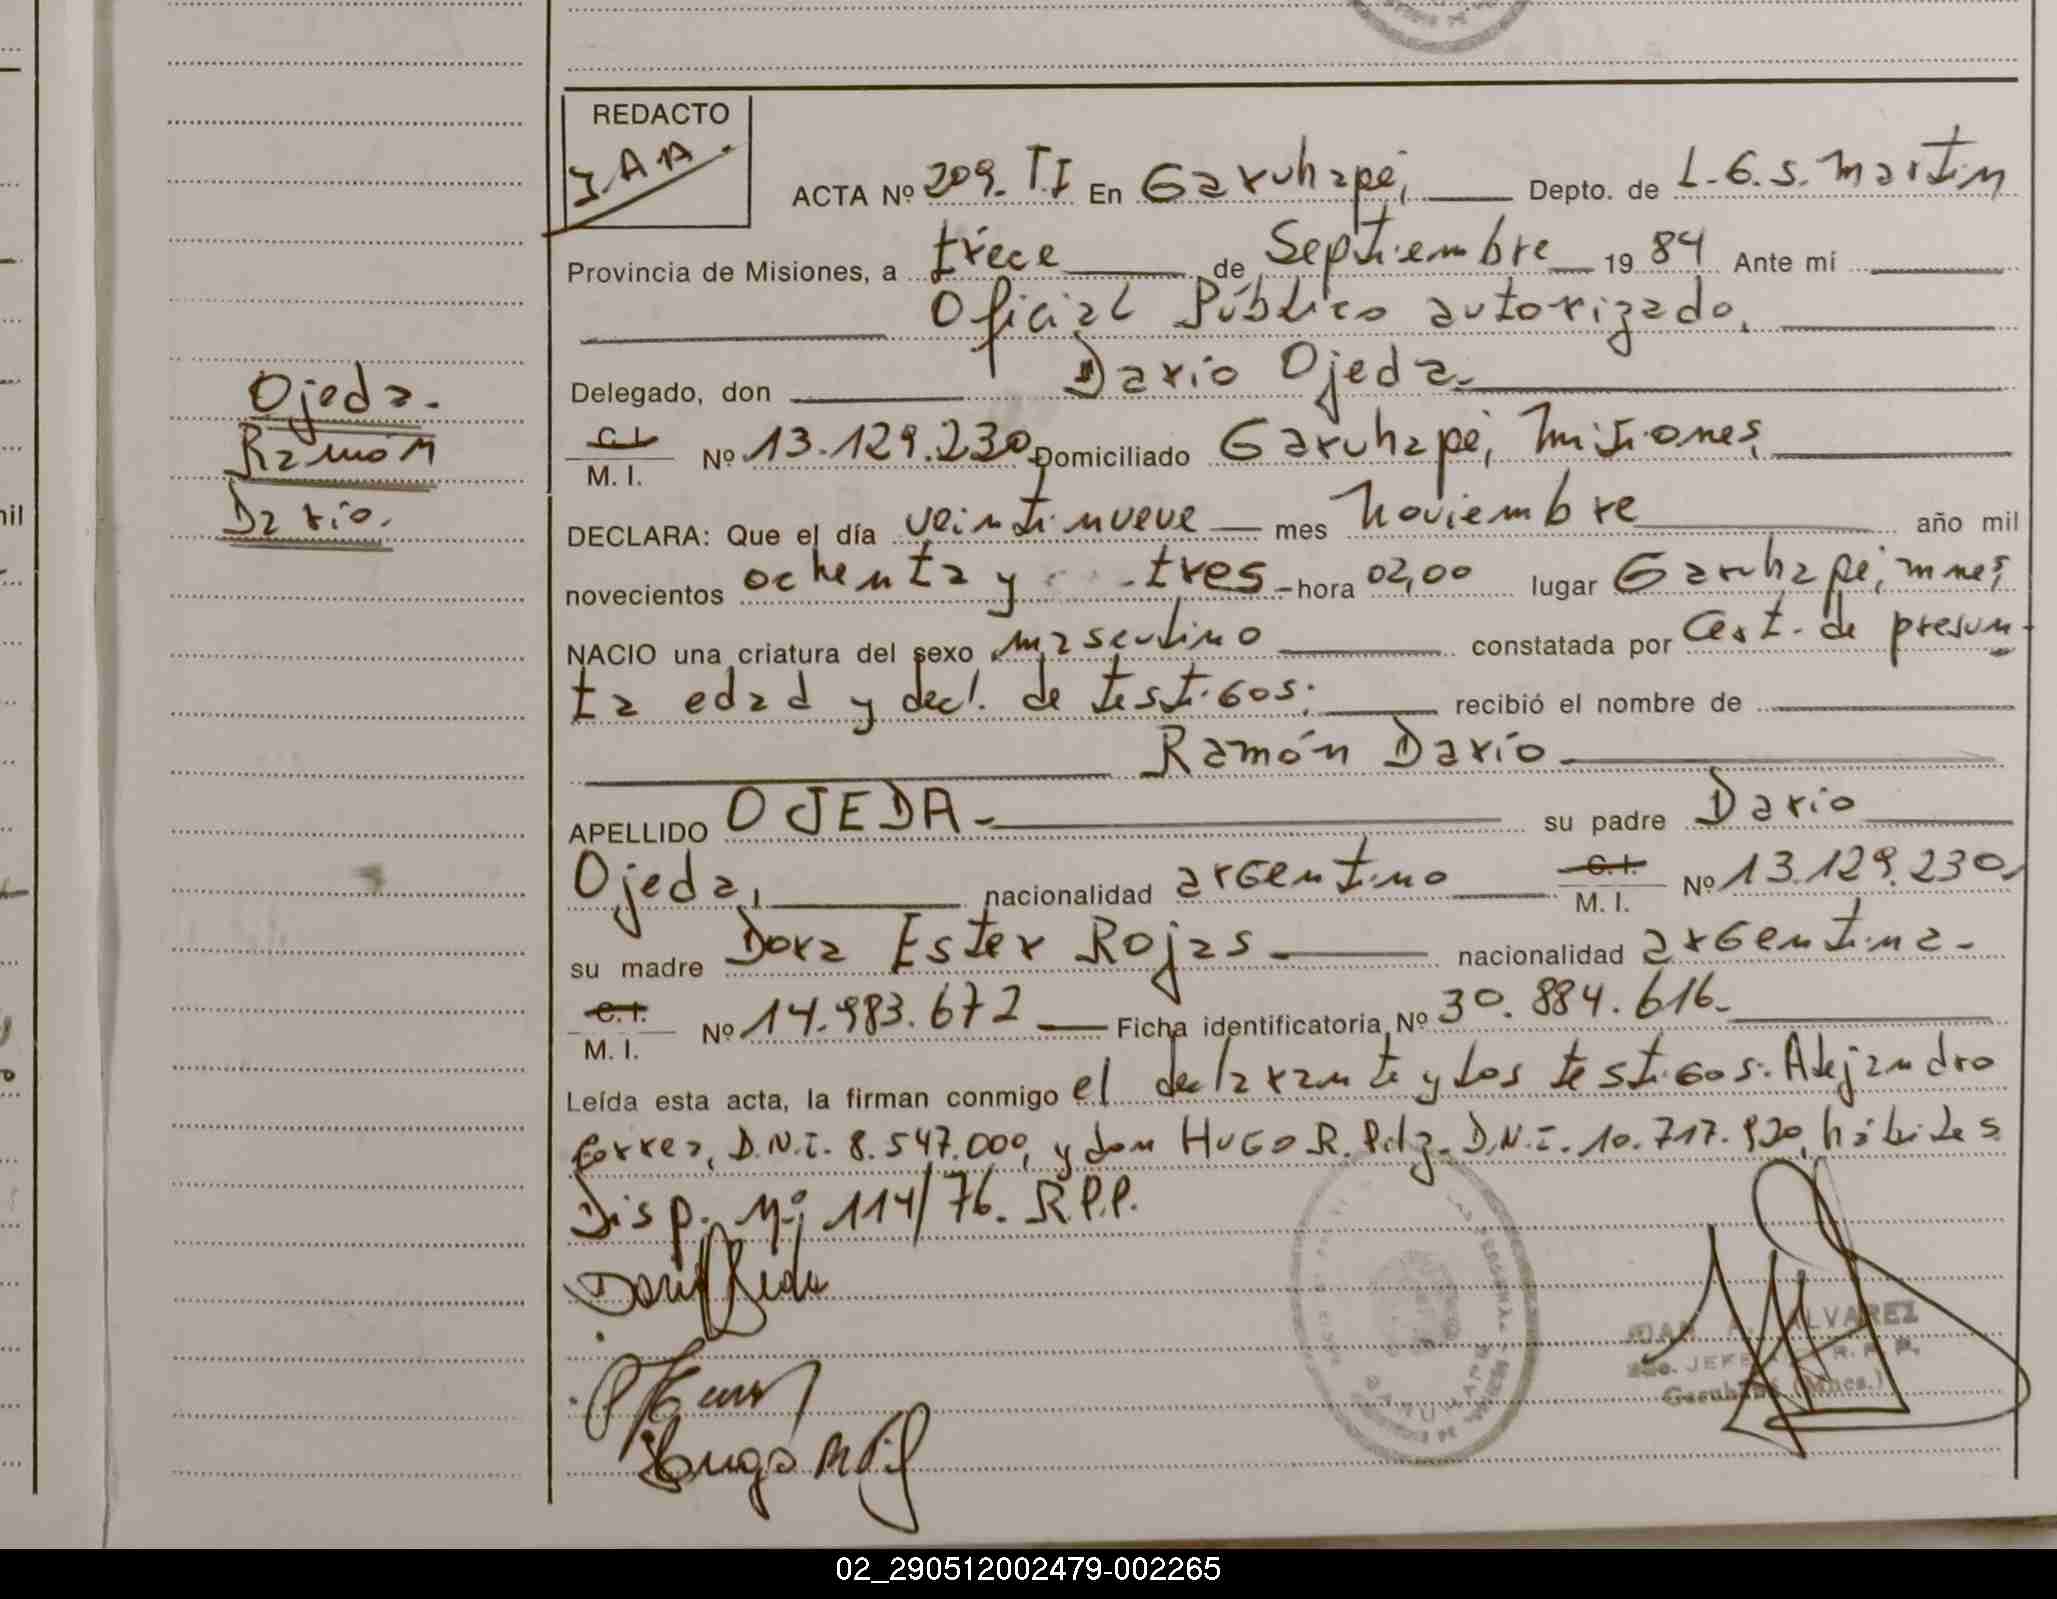 REDACTO
J.A.A.
ACTA Nº 209. T.I En Garuhapé, Depto. de L.G.S. Martín
Provincia de Misiones, a trece de Septiembre 19 84 Ante mí
Oficial Público autorizado,
Delegado, don Darío Ojeda.
C.I.
M. I. Nº 13.129.230 Domiciliado Garuhapé, Misiones,
DECLARA: Que el día veintinueve mes Noviembre año mil
novecientos ochenta y tres - hora 02,00 lugar Garuhapé, mnes,
NACIO una criatura del sexo masculino constatada por Cert. de presun-
ta edad y decl. de testigos; recibió el nombre de
Ramón Darío
APELLIDO OJEDA - su padre Darío
Ojeda, nacionalidad argentino C.I.
M. I. Nº 13.129.230,
su madre Dora Ester Rojas nacionalidad argentina -
C.I.
M. I. Nº 14.983.672 Ficha identificatoria Nº 30.884.616 -
Leída esta acta, la firman conmigo el declarante y los testigos: Alejandro
D.N.I. 8.547.000, y don HUGO R. D.N.I. 10.717.920, hábiles
Disp. Nº 114/76. R.P.P.
Ojeda.
Ramón
Darío.
GARUHAPE
JUAN A. ALVAREZ
JEFE R. P. P.
Garuhapé (Mnes.)
02_290512002479-002265